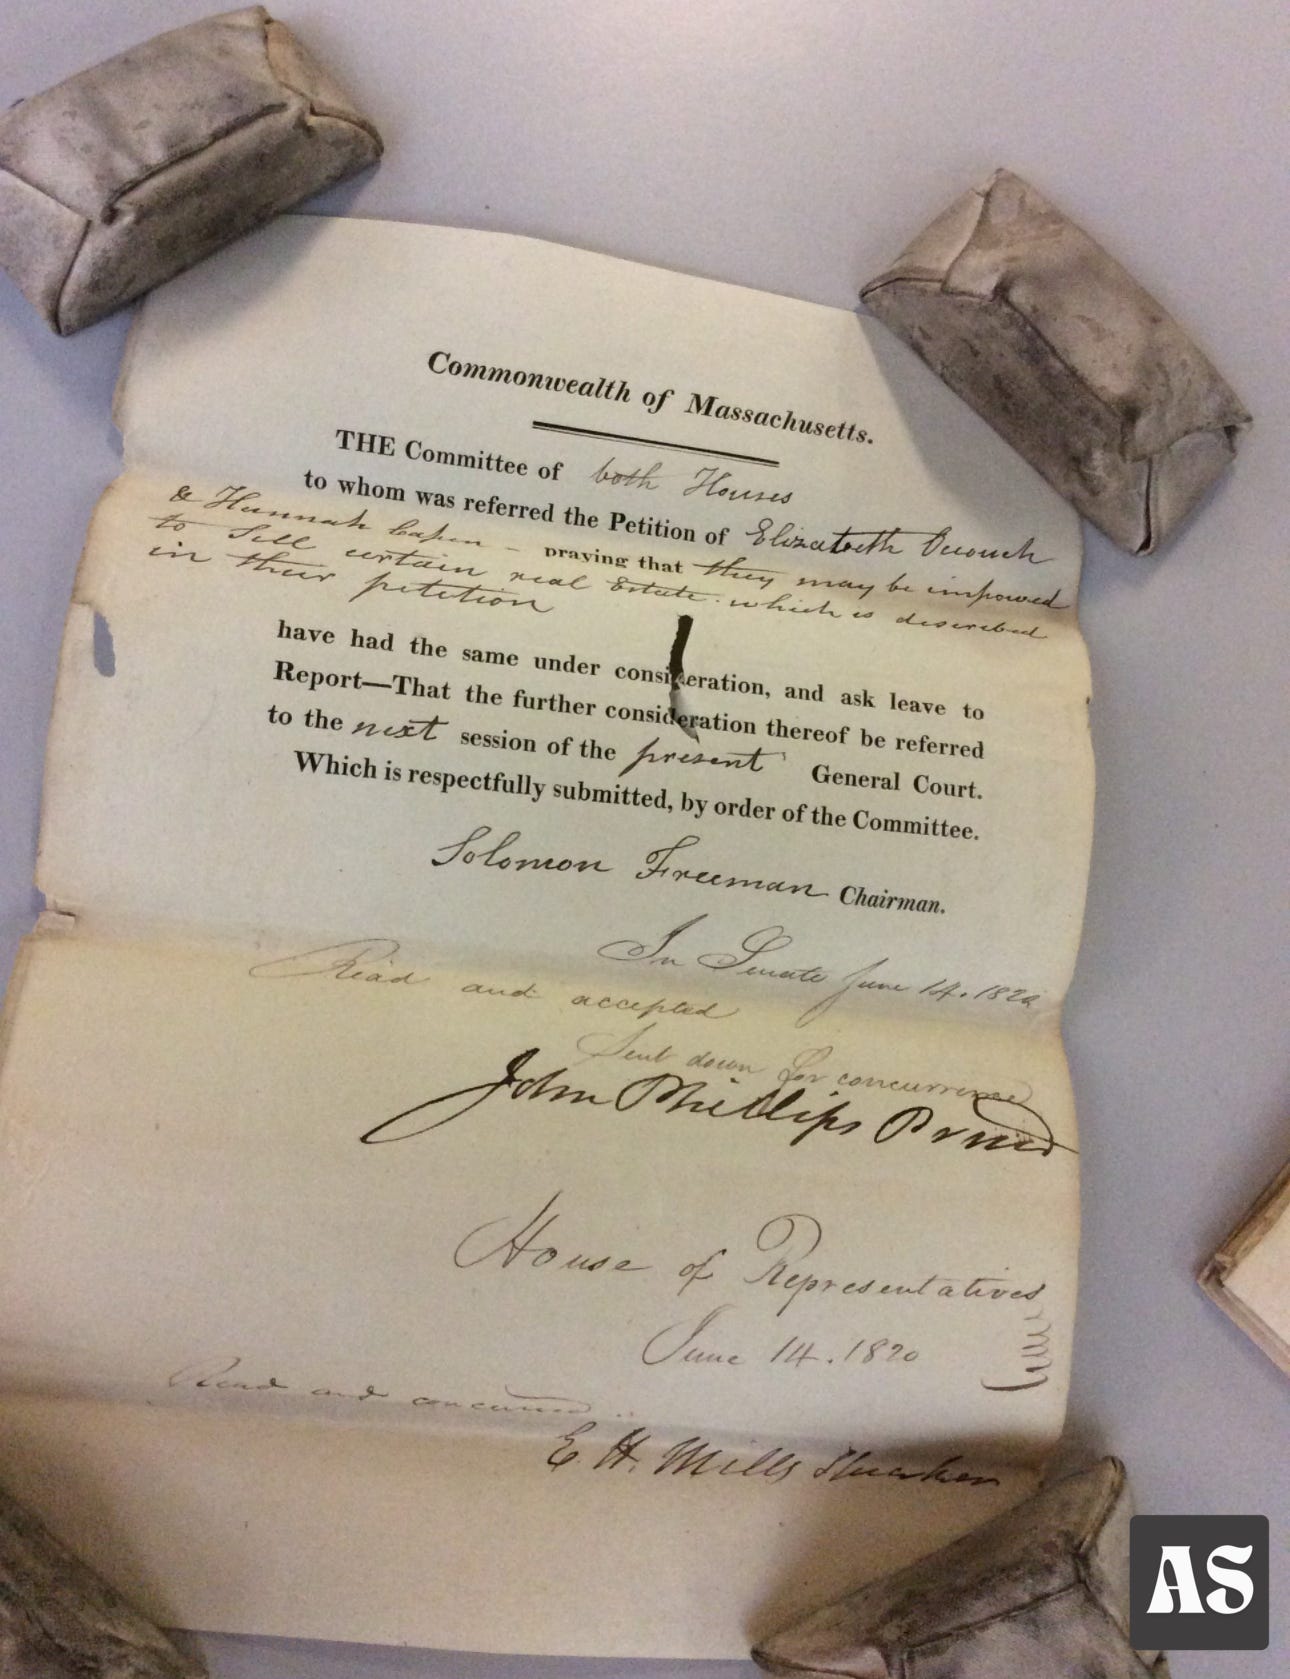 Commonwealth of Massachusetts.
THE Committee of both Houses
to whom was referred the Petition of Elizabeth
& Hannah Capen – praying that they may be impowred
to Sell certain real Estate which is described
in their petition
have had the same under consideration, and ask leave to
Report—That the further consideration thereof be referred
to the next session of the present General Court.
Which is respectfully submitted, by order of the Committee.
Solomon Freeman Chairman.
In Senate June 14. 1820
Read and accepted
Sent down for concurrence
John Phillips Presid
House of Representatives
June 14. 1820
Read and concurred
E. H. Mills Speaker
AS